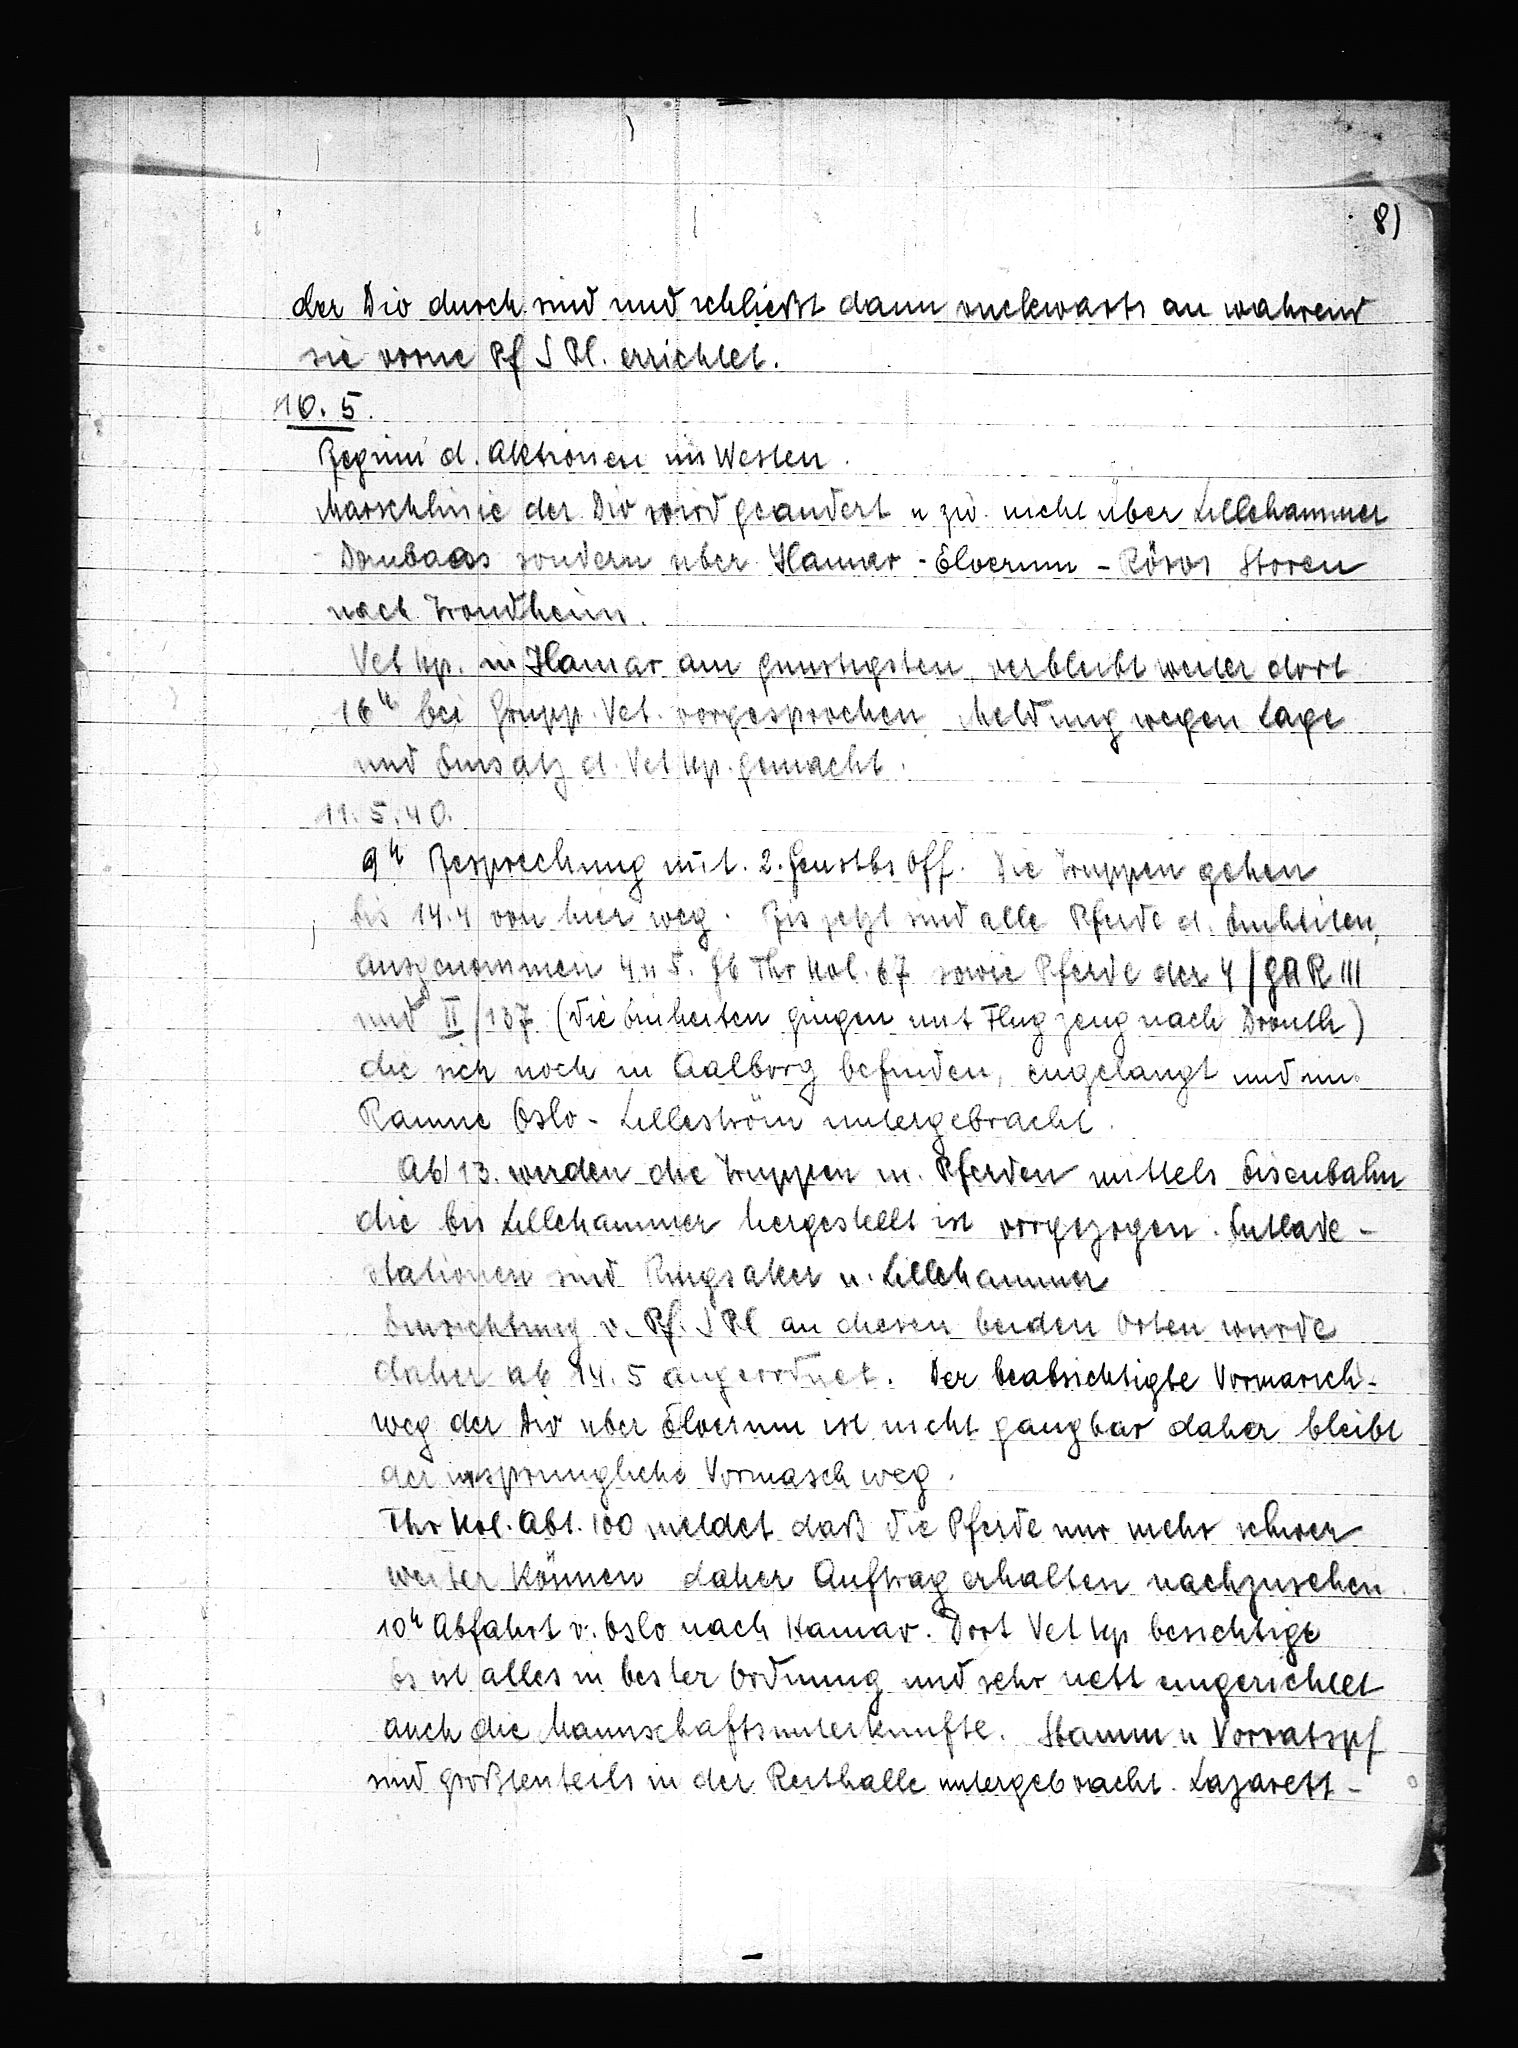 8)
der Div durch sind und schließt dann ruckwarts an wahrend
sie vorne Pf S Pl. errichtet.
10. 5.
Beginn d. Aktionen im Westen.
Marschlinie der Div wird geandert u zw. nicht über Lillehammer
Dombaas sondern uber Hamar - Elverum - Röros Storen
nach Trondheim.
Vet Kp. in Hamar am gunstigsten, verbleibt weiter dort
16ʰ bei Grupp. Vet. vorgesprochen. Meldung wegen Lage
und Einsatz d. Vet Kp. gemacht.
11. 5. 40.
9ʰ Besprechung mit. 2. Genstbs Off. Die Truppen gehen
bis 14.4 von hier weg. Bis jetzt sind alle Pferde d. Einheiten,
ausgenommen 4 u 5. Gb Fhr Kol. 67 sowie Pferde der 4/GAR 111
und II/137 (die Einheiten gingen mit Flugzeug nach Dronth)
die sich noch in Aalborg befinden, eingelangt und im
Raume Oslo - Lilleström untergebracht.
Ab 13. werden die Truppen m. Pferden mittels Eisenbahn
die bis Lillehammer hergestellt ist vorgezogen. Entlade-
stationen sind Ringsaker u. Lillehammer
Einrichtung v. Pf. S Pl an diesen beiden Orten wurde
daher ab 14. 5 angeordnet. Der beabsichtigte Vormarsch-
weg der Div uber Elverum ist nicht gangbar daher bleibt
der ursprungliche Vormasch weg.
Fhr Kol. Abt. 100 meldet daß die Pferde nur mehr schwer
weiter können daher Auftrag erhalten nachzusehen.
10ʰ Abfahrt v. Oslo nach Hamar. Dort Vet Kp besichtige
Es ist alles in bester Ordnung und sehr nett eingerichtet
auch die Mannschaftsunterkunfte. Stamm u Vorratspf
sind großtenteils in der Reithalle untergebracht. Lazarett-